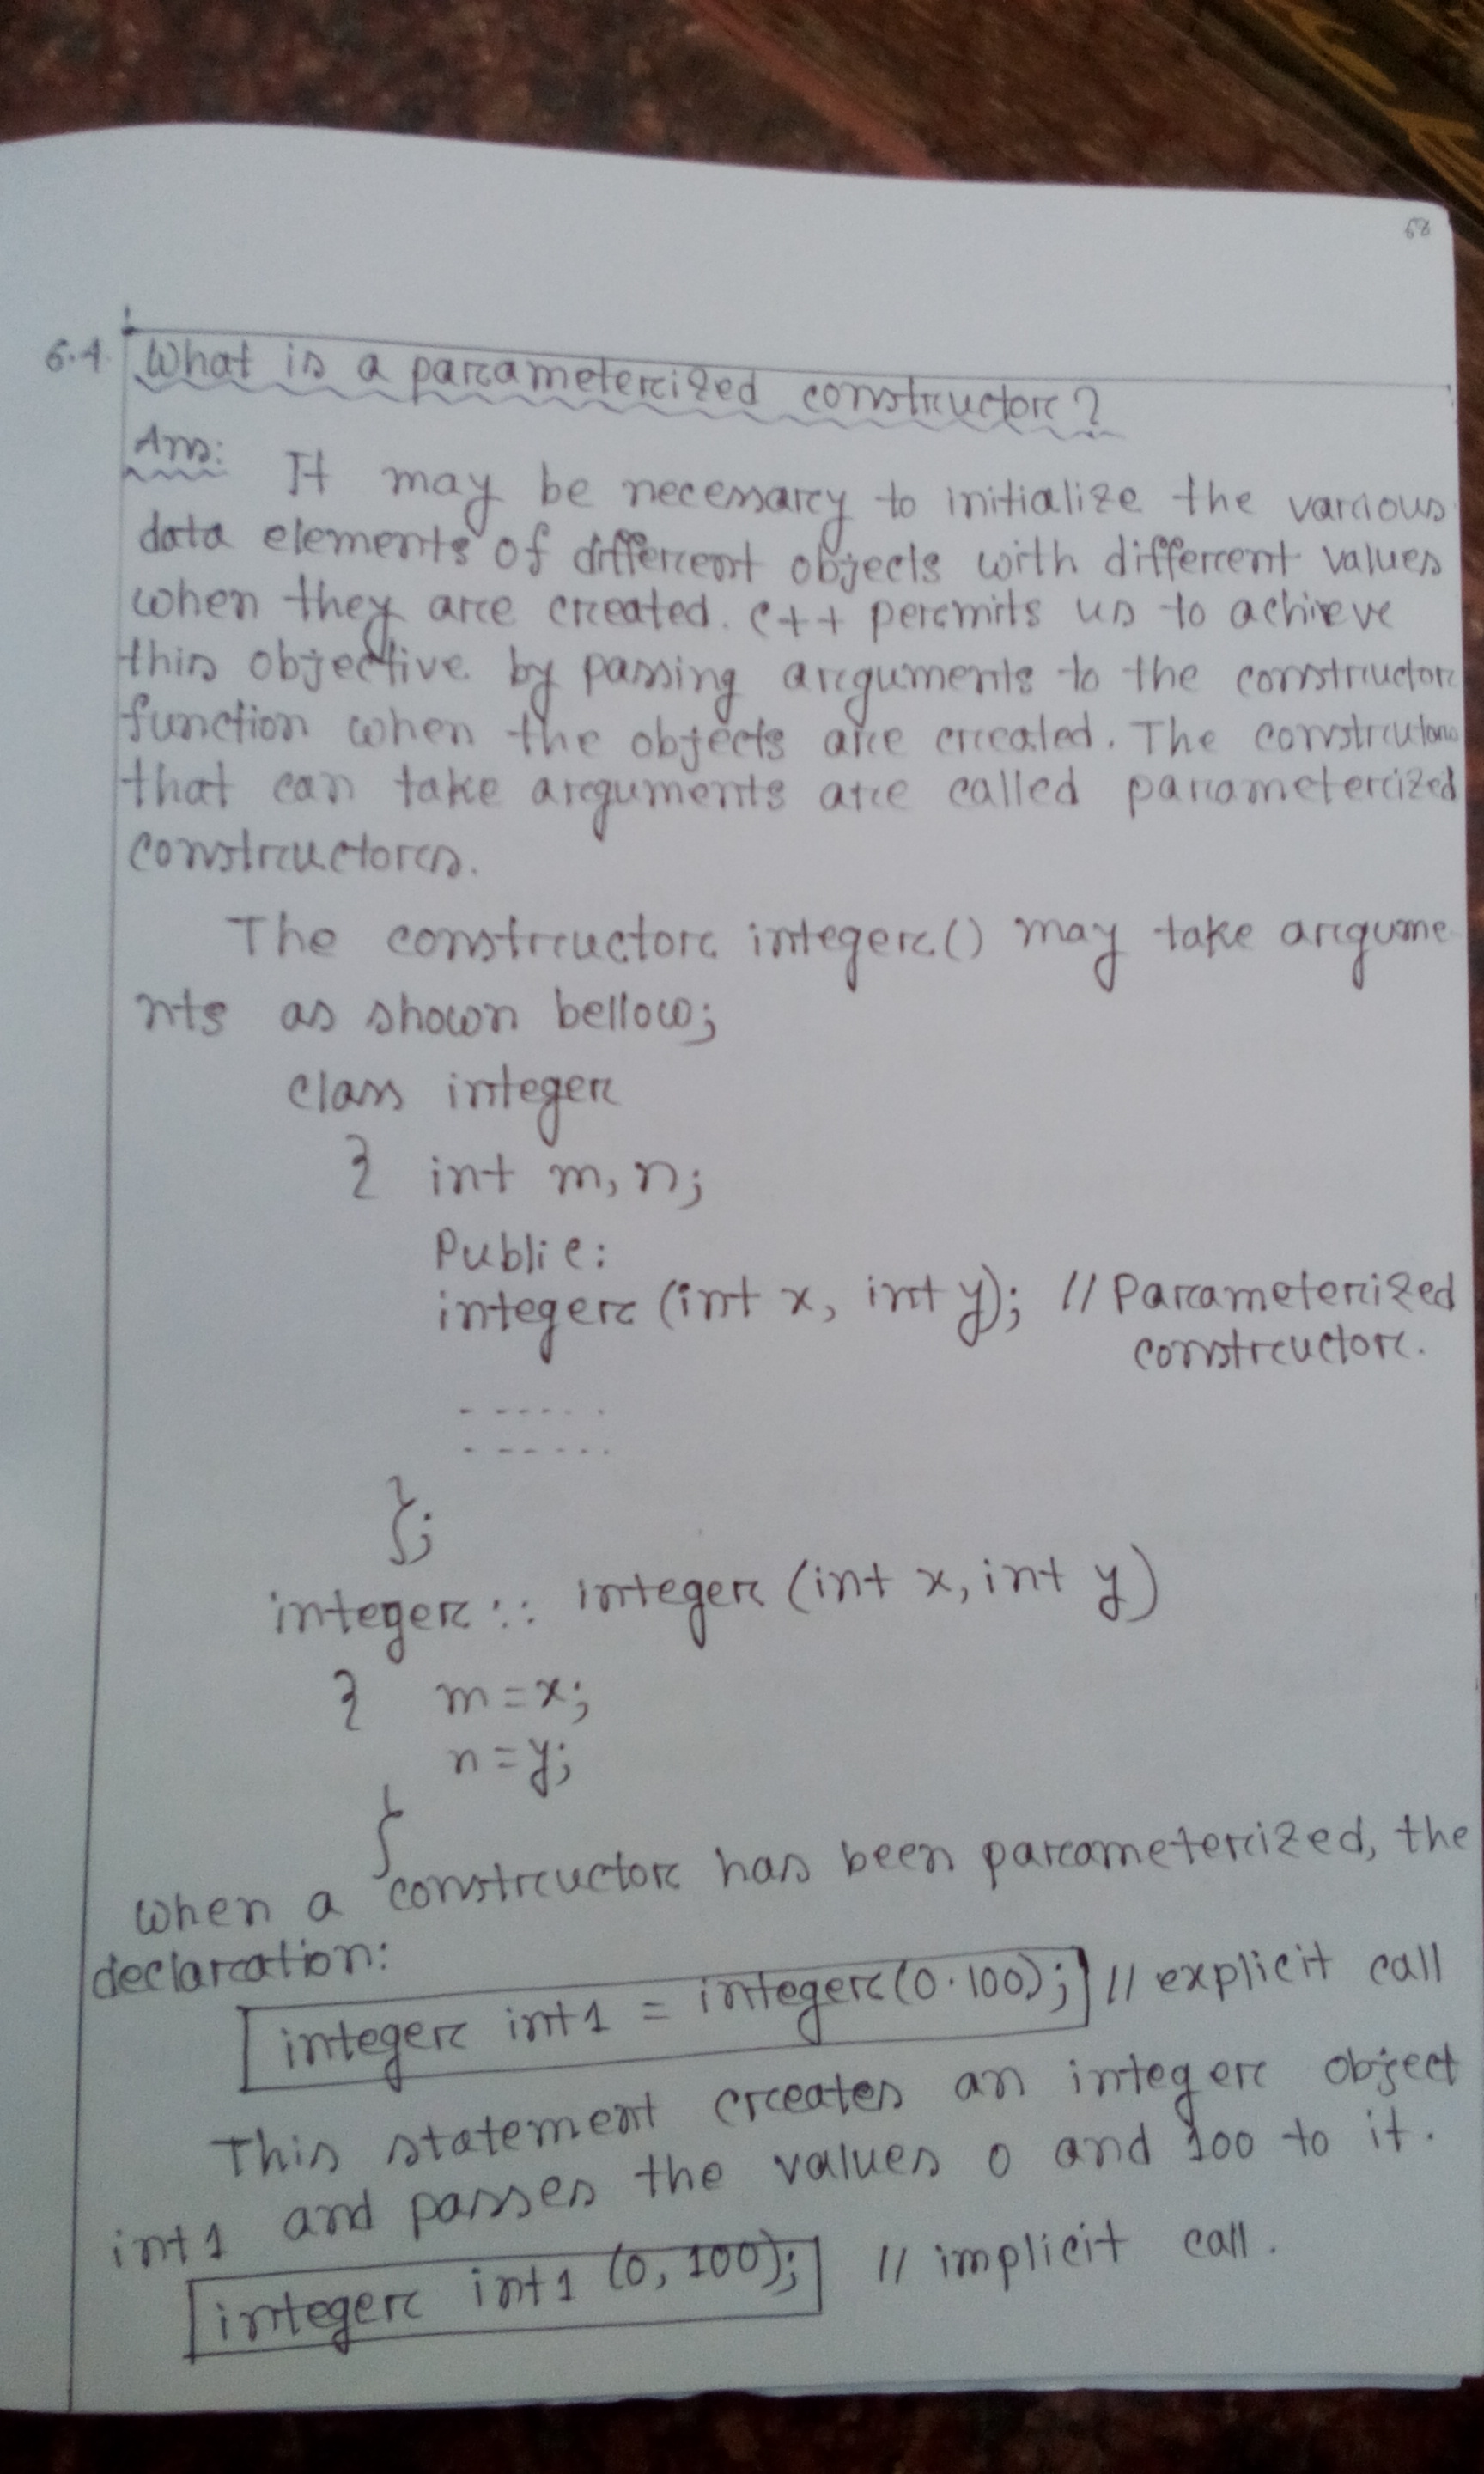 68
6.4. What is a parameterized constructor?
Ans: It may be necessary to initialize the various
data elements of different objects with different values
when they are created. C++ permits us to achieve
this objective by passing arguments to the constructor
function when the objects are created. The constructors
that can take arguments are called parameterized
constructors.
The constructor integer() may take argume
nts as shown bellow;
class integer
{ int m, n;
Public:
integer (int x, int y); // Parameterized
constructor.
- - - - - -
- - - - - -
};
integer :: integer (int x, int y)
{ m = x;
n = y;
}
When a constructor has been parameterized, the
declaration:
integer int1 = integer(0.100); // explicit call
This statement creates an integer object
int1 and passes the values 0 and 100 to it.
integer int1 (0, 100); // implicit call.